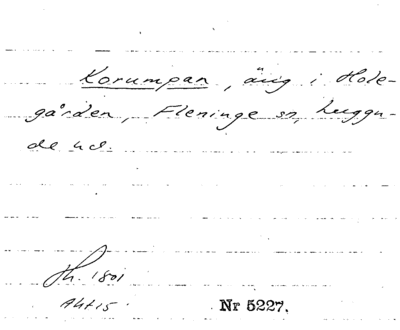 Korumpan, äng i Hole-
gården, Fleninge sn, Luggu-
de hd.
Th. 1801
Akt 15
Nr 5227.